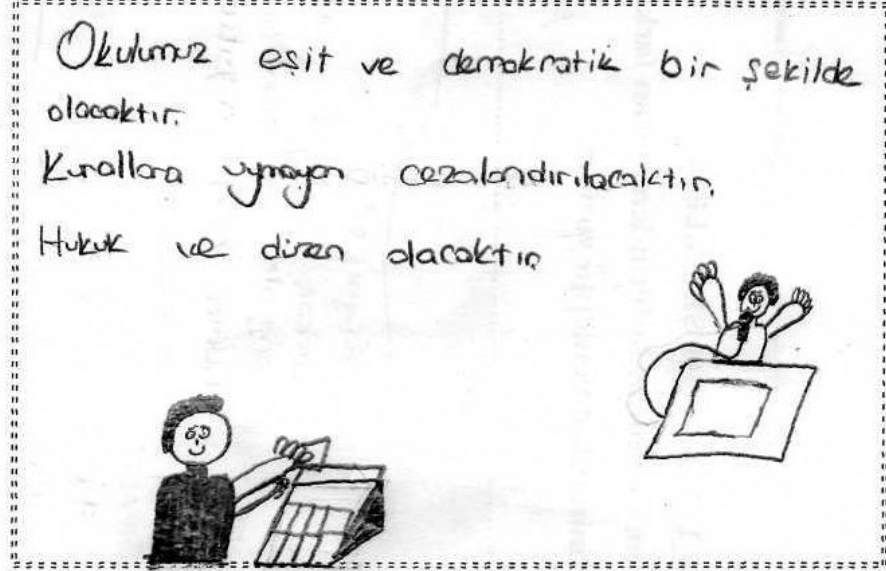 Okulumuz eşit ve demokratik bir şekilde
olacaktır.
Kurallara uymayan cezalandırılacaktır.
Hukuk ve düzen olacaktır